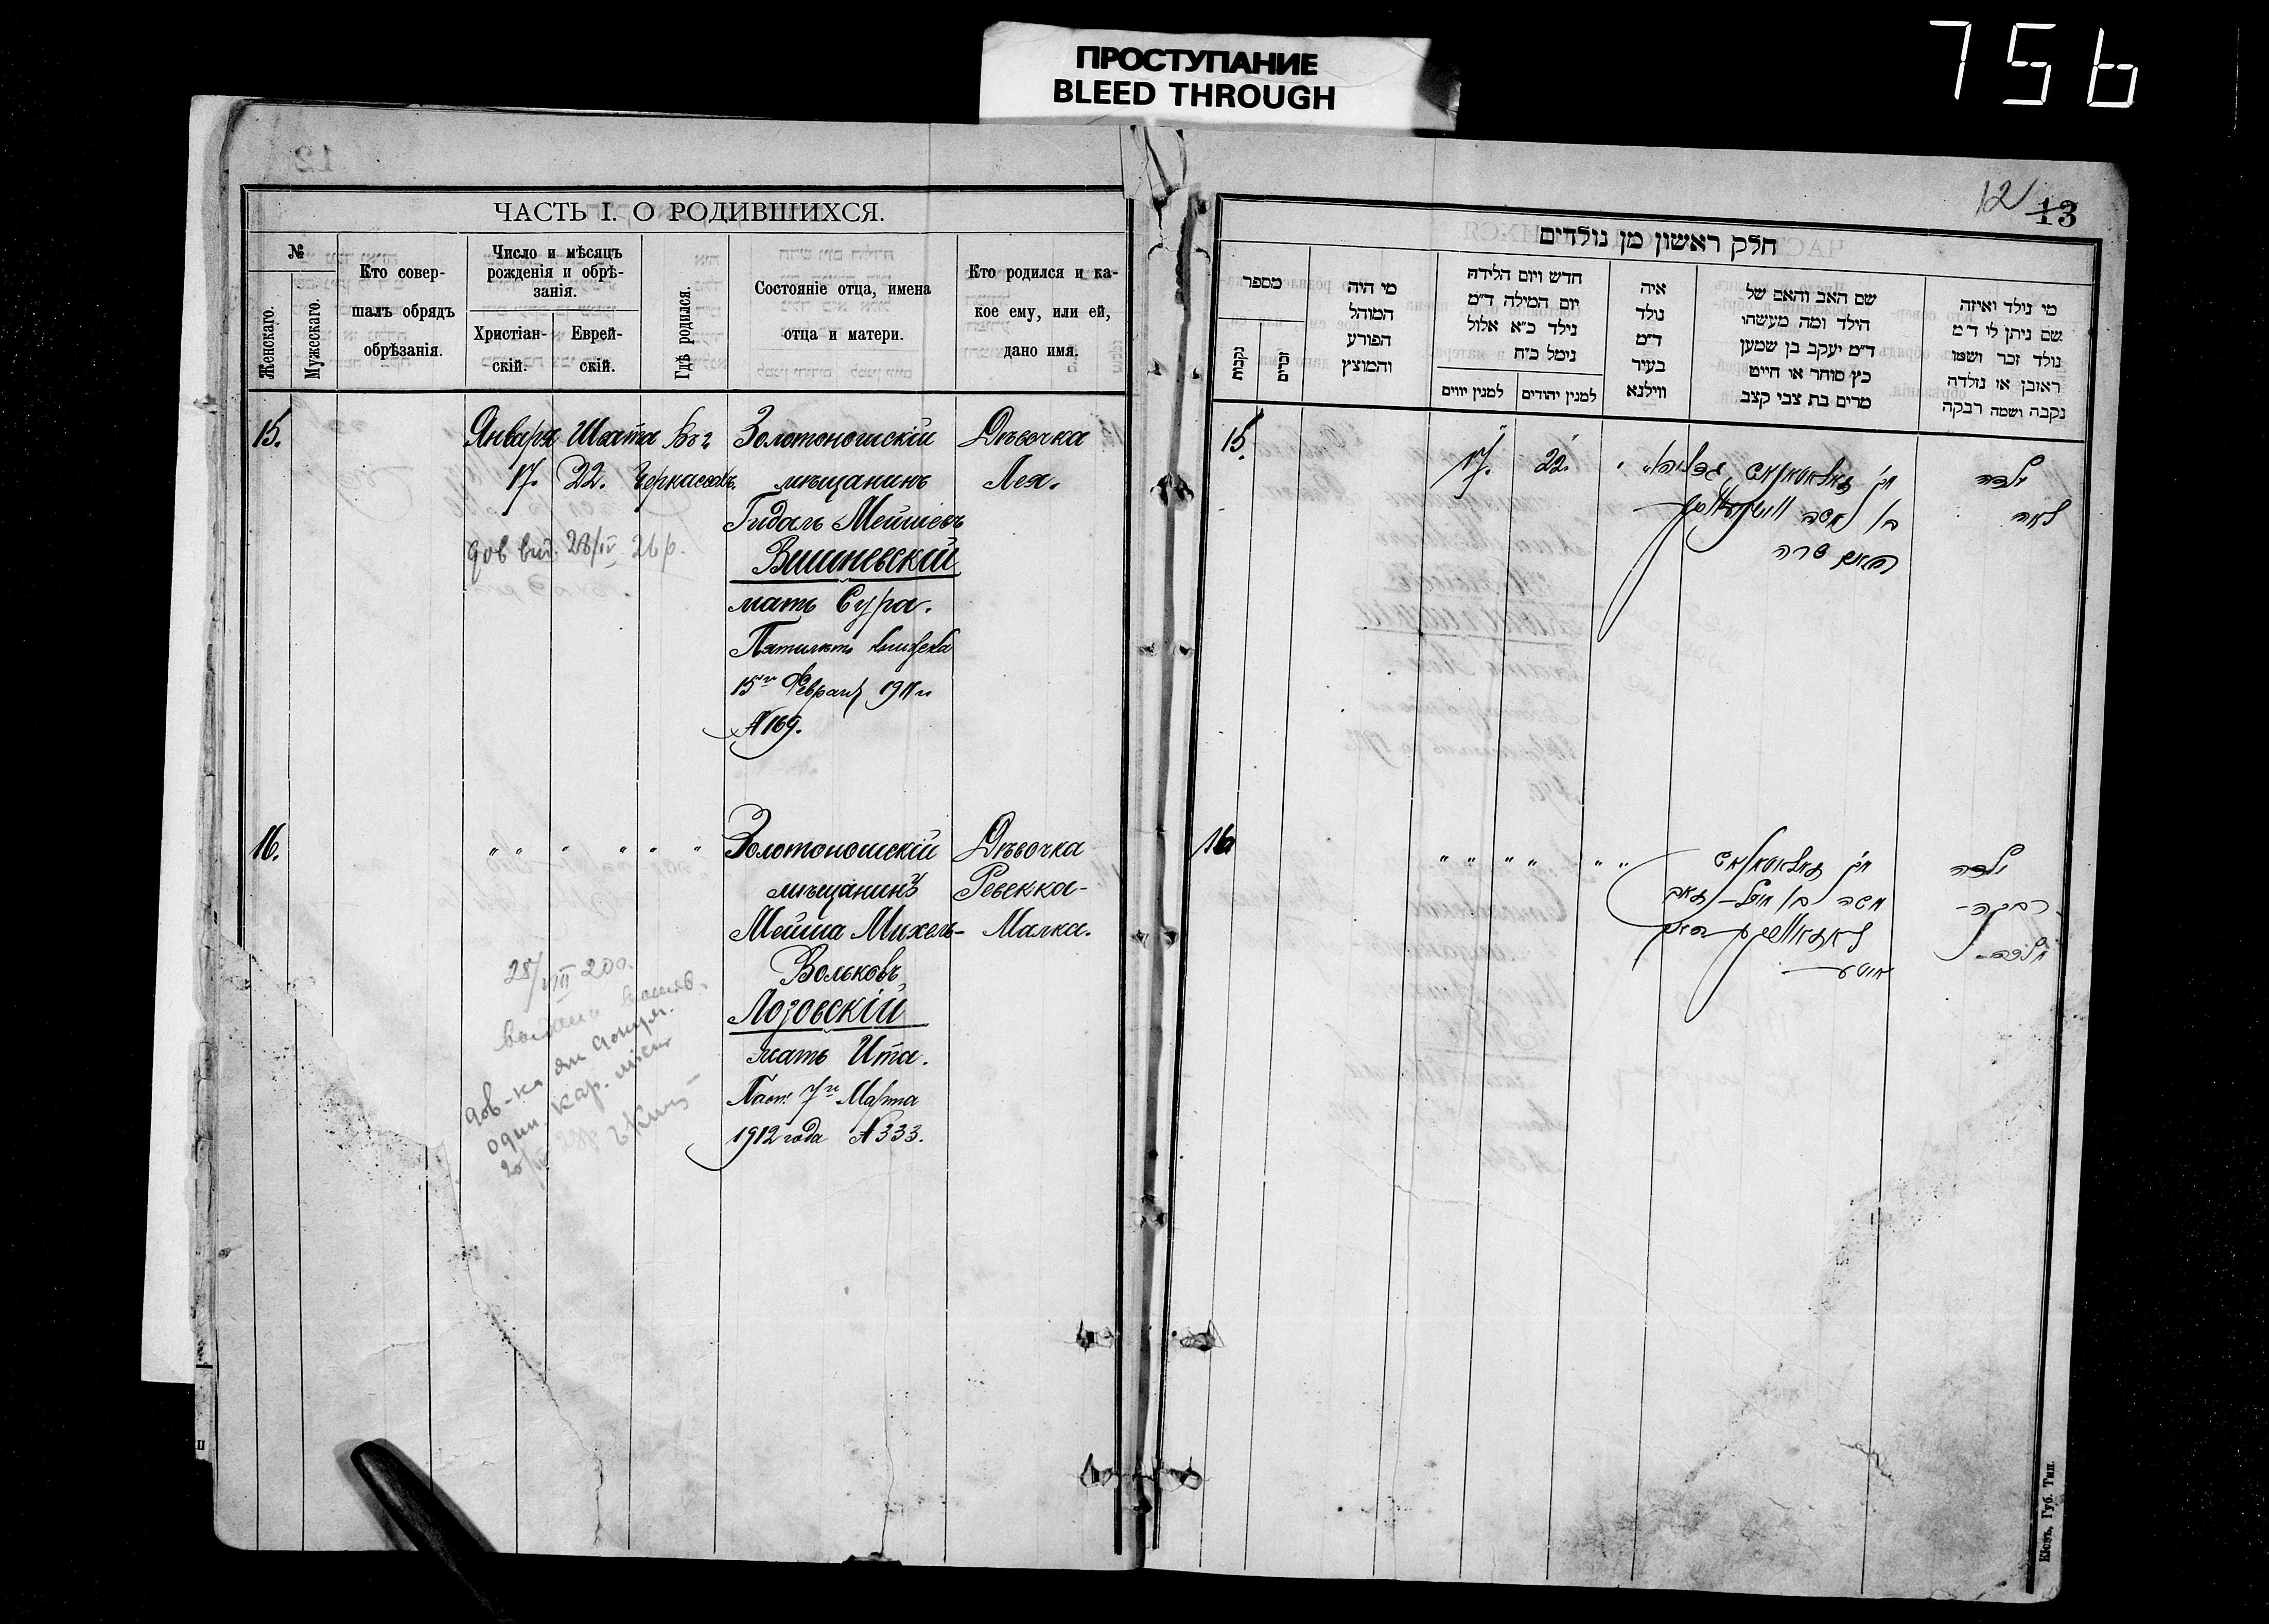 ПРОСТУПАНИЕ
BLEED THROUGH
756
ЧАСТЬ I. О РОДИВШИХСЯ.
№
Женскаго.
Мужескаго.
Кто совер-
шалъ обрядъ
обрѣзанія.
Число и мѣсяцъ
рожденія и обрѣ-
занія.
Христіан-
скій.
Еврей-
скій.
Гдѣ родился.
Состояніе отца, имена
отца и матери.
Кто родился и ка-
кое ему, или ей,
дано имя.
15.
Января Швата Въ г.
17. 22. Черкассахъ.
Золотоношскій
мѣщанинъ
Гидаль Мейшевъ
Вишневскій
мать Сура.
15го Февраля 1911 г.
№ 169.
Дѣвочка
Лея.
28/IV 26 р.
16.
" " " " " "
Золотоношскій
мѣщанинъ
Мейша Михель-
Вольковъ
Лозовскій
мать Ита.
Пасп. 7го Марта
1912 года № 333.
Дѣвочка
Ревекка-
Малка.
28/VIII 20 г.
12 13
חלק ראשון מן נולדים
מספר
נקבות
זכרים
מי היה
המוהל
הפורע
והמוצץ
חדש ויום הלידה
יום המילה ד״מ
נילד כ״א אלול
נימל כ״ח
למנין יווים
למנין יהודים
איה
נולד
ד״מ
בעיר
ווילנא
שם האב והאם של
הילד ומה מעשהו
ד״מ יעקב בן שמען
כץ סוחר או חייט
מרים בת צבי קצב
מי נולד ואיזה
שם ניתן לי ד״מ
נולד זכר ושמו
ראובן או נולדה
נקבה ושמה רבקה
15.
17.
22.
בן משה
האם שרה
ילדה
לאה
16
" " " " " "
ילדה
רבקה-
מלכה-
Кіевъ, Губ. Тип.